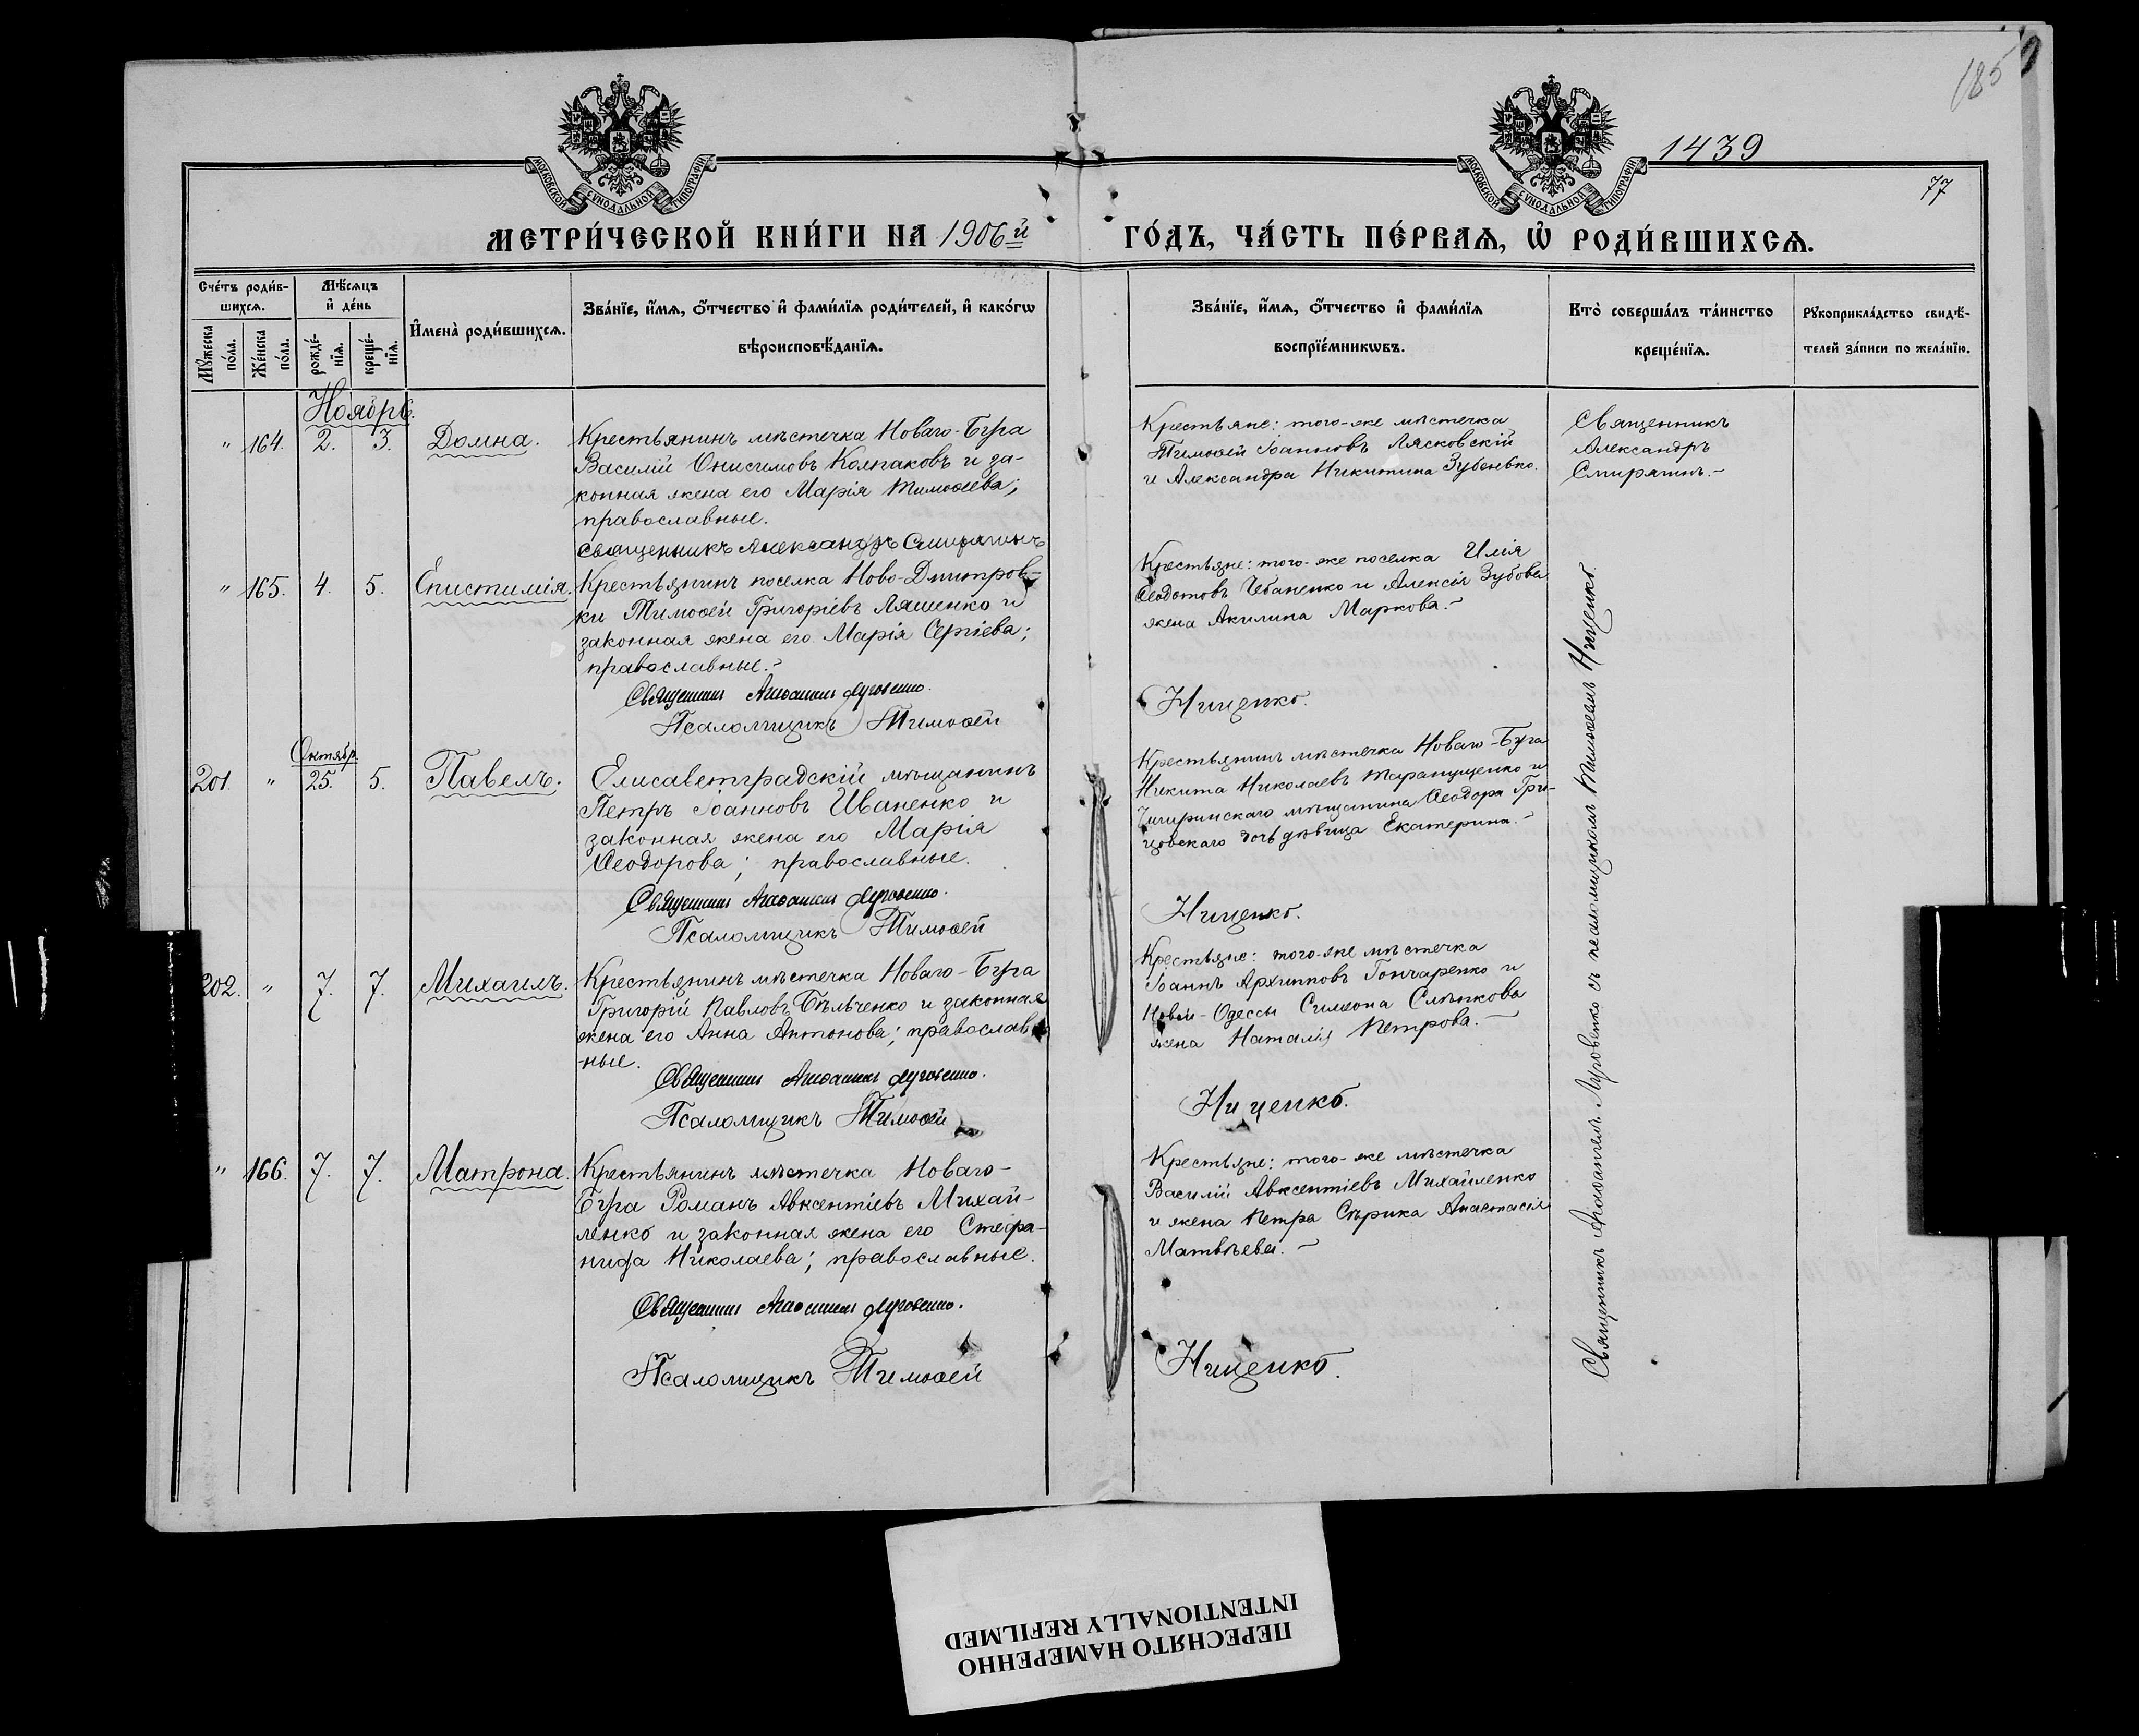 185
1439
77
МОСКОВСКОЙ СѴНОДАЛЬНОЙ ТИПОГРАФІИ
МОСКОВСКОЙ СѴНОДАЛЬНОЙ ТИПОГРАФІИ
МЕТРИ́ЧЕСКОЙ КНИ́ГИ НА 1906й ГО́ДЪ, ЧА́СТЬ ПЕ́РВАѦ, Ѡ РОДИ́ВШИХСѦ.
Сче́тъ роди́в-
шихсѧ.
Мѣсѧцъ
и де́нь
Мꙋжеска
по́ла.
Же́нска
по́ла.
рожде́-
нїѧ.
креще́-
нїѧ.
Имена̀ роди́вшихсѧ.
Зва́нїе, и́мѧ, о́тчество и фами́лїѧ роди́телей, и како́гѡ
вѣроисповѣ́данїѧ.
Зва́нїе, и́мѧ, о́тчество и фами́лїѧ
воспрїе́мникѡвъ.
Кто̀ соверша́лъ та́инство
креще́нїѧ.
Рꙋкоприкла́дство свидѣ́-
телей за́писи по жела́нїю.
Ноябрь.
" 164. 2. 3. Домна.
Крестьянинъ мѣстечка Новаго-Буга
Василій Онисимовъ Колпаковъ и за-
конная жена его Марія Тимоѳеева;
православные.
Священникъ Александръ Смирягинъ
Крестьяне: того-же мѣстечка
Тимоѳей Іоанновъ Лясковскій
и Александра Никитина Зубенько.
Священникъ
Александръ
Смирягинъ.-
" 165. 4. 5. Епистимія.
Крестьянинъ поселка Ново-Дмитров-
ки Тимоѳей Григоріевъ Ляшенко и
законная жена его Марія Сергіева;
православные.-
Священникъ Агаѳангелъ Луговенко.
Псаломщикъ Тимоѳей
Крестьяне: того-же поселка Илія
Ѳеодотовъ Чебаненко и Алексія Зубова
жена Акилина Маркова.-
Нищенко.
Октябр.
201. " 25. 5. Павелъ.
Елисаветградскій мѣщанинъ
Петръ Іоанновъ Иваненко и
законная жена его Марія
Ѳеодорова; православные.
Священникъ Агаѳангелъ Луговенко.
Псаломщикъ Тимоѳей
Крестьянинъ мѣстечка Новаго-Буга
Никита Николаевъ Тарапущенко и
Чигиринскаго мѣщанина Ѳеодора Гри-
цовскаго дочь дѣвица Екатерина.-
Нищенко.
202. " 7. 7. Михаилъ.
Крестьянинъ мѣстечка Новаго-Буга
Григорій Павловъ Бѣльченко и законная
жена его Анна Антонова; православ-
-ные.
Священникъ Агаѳангелъ Луговенко.
Псаломщикъ Тимоѳей
Крестьяне: того-же мѣстечка
Іоаннъ Архипповъ Гончаренко и
Новой-Одессы Симеона Слѣпкова
жена Наталія Петрова.-
Нищенко.
" 166. 7. 7. Матрона.
Крестьянинъ мѣстечка Новаго-
Буга Романъ Авксентіевъ Михай-
ленко и законная жена его Стефа-
нида Николаева; православные.
Священникъ Агаѳангелъ Луговенко.
Псаломщикъ Тимоѳей
Крестьяне: того-же мѣстечка
Василій Авксентіевъ Михайленко
и жена Петра Сѣрика Анастасія
Матвѣева.-
Нищенко.
Священникъ Агаѳангелъ Луговенко съ псаломщикомъ Тимоѳеемъ Нищенко.
ПЕРЕСНЯТО НАМЕРЕННО
INTENTIONALLY REFILMED